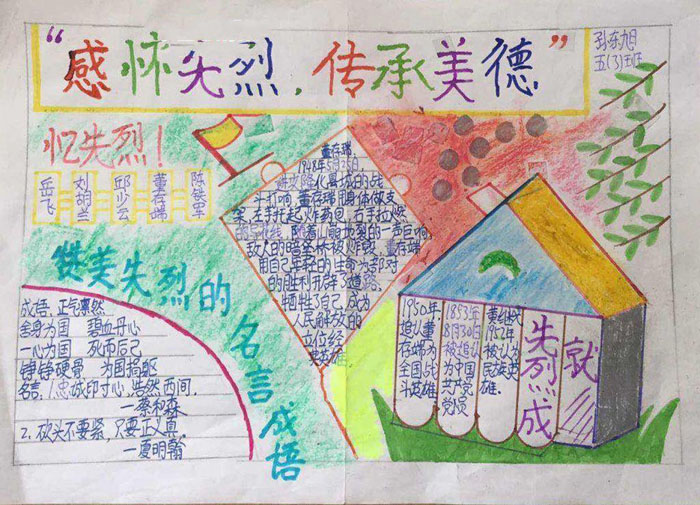 “感怀先烈，传承美德”
孙东旭
五(3)班
忆先烈！
岳飞
刘胡兰
邱少云
董存瑞
赞美先烈的
名言成语
成语，正气凛然
舍身为国 碧血丹心
一心为国 死而后已
铮铮硬骨 为国捐躯
名言，1忠诚印寸心，浩然
—蔡和森
2. 砍头不要紧，只要主义真
—夏明翰
董存瑞
1948年5月25日
化县城的战
斗打响，董存瑞用身体做支
架，左手托起炸药包，右手拉燃
随着儿崩地裂的一声巨响
敌人的暗堡 被炸毁，董存瑞
用自己年轻的生命为部队
的胜利开辟了道路，
牺牲了自己，成为
人民解放的
英雄。
1950年，
追认董
存瑞为
全国战
斗英雄。
1853年
8月30日
被追认
为中国
共产党
党员
1952年
被认为
民族英
雄.
先烈成
就